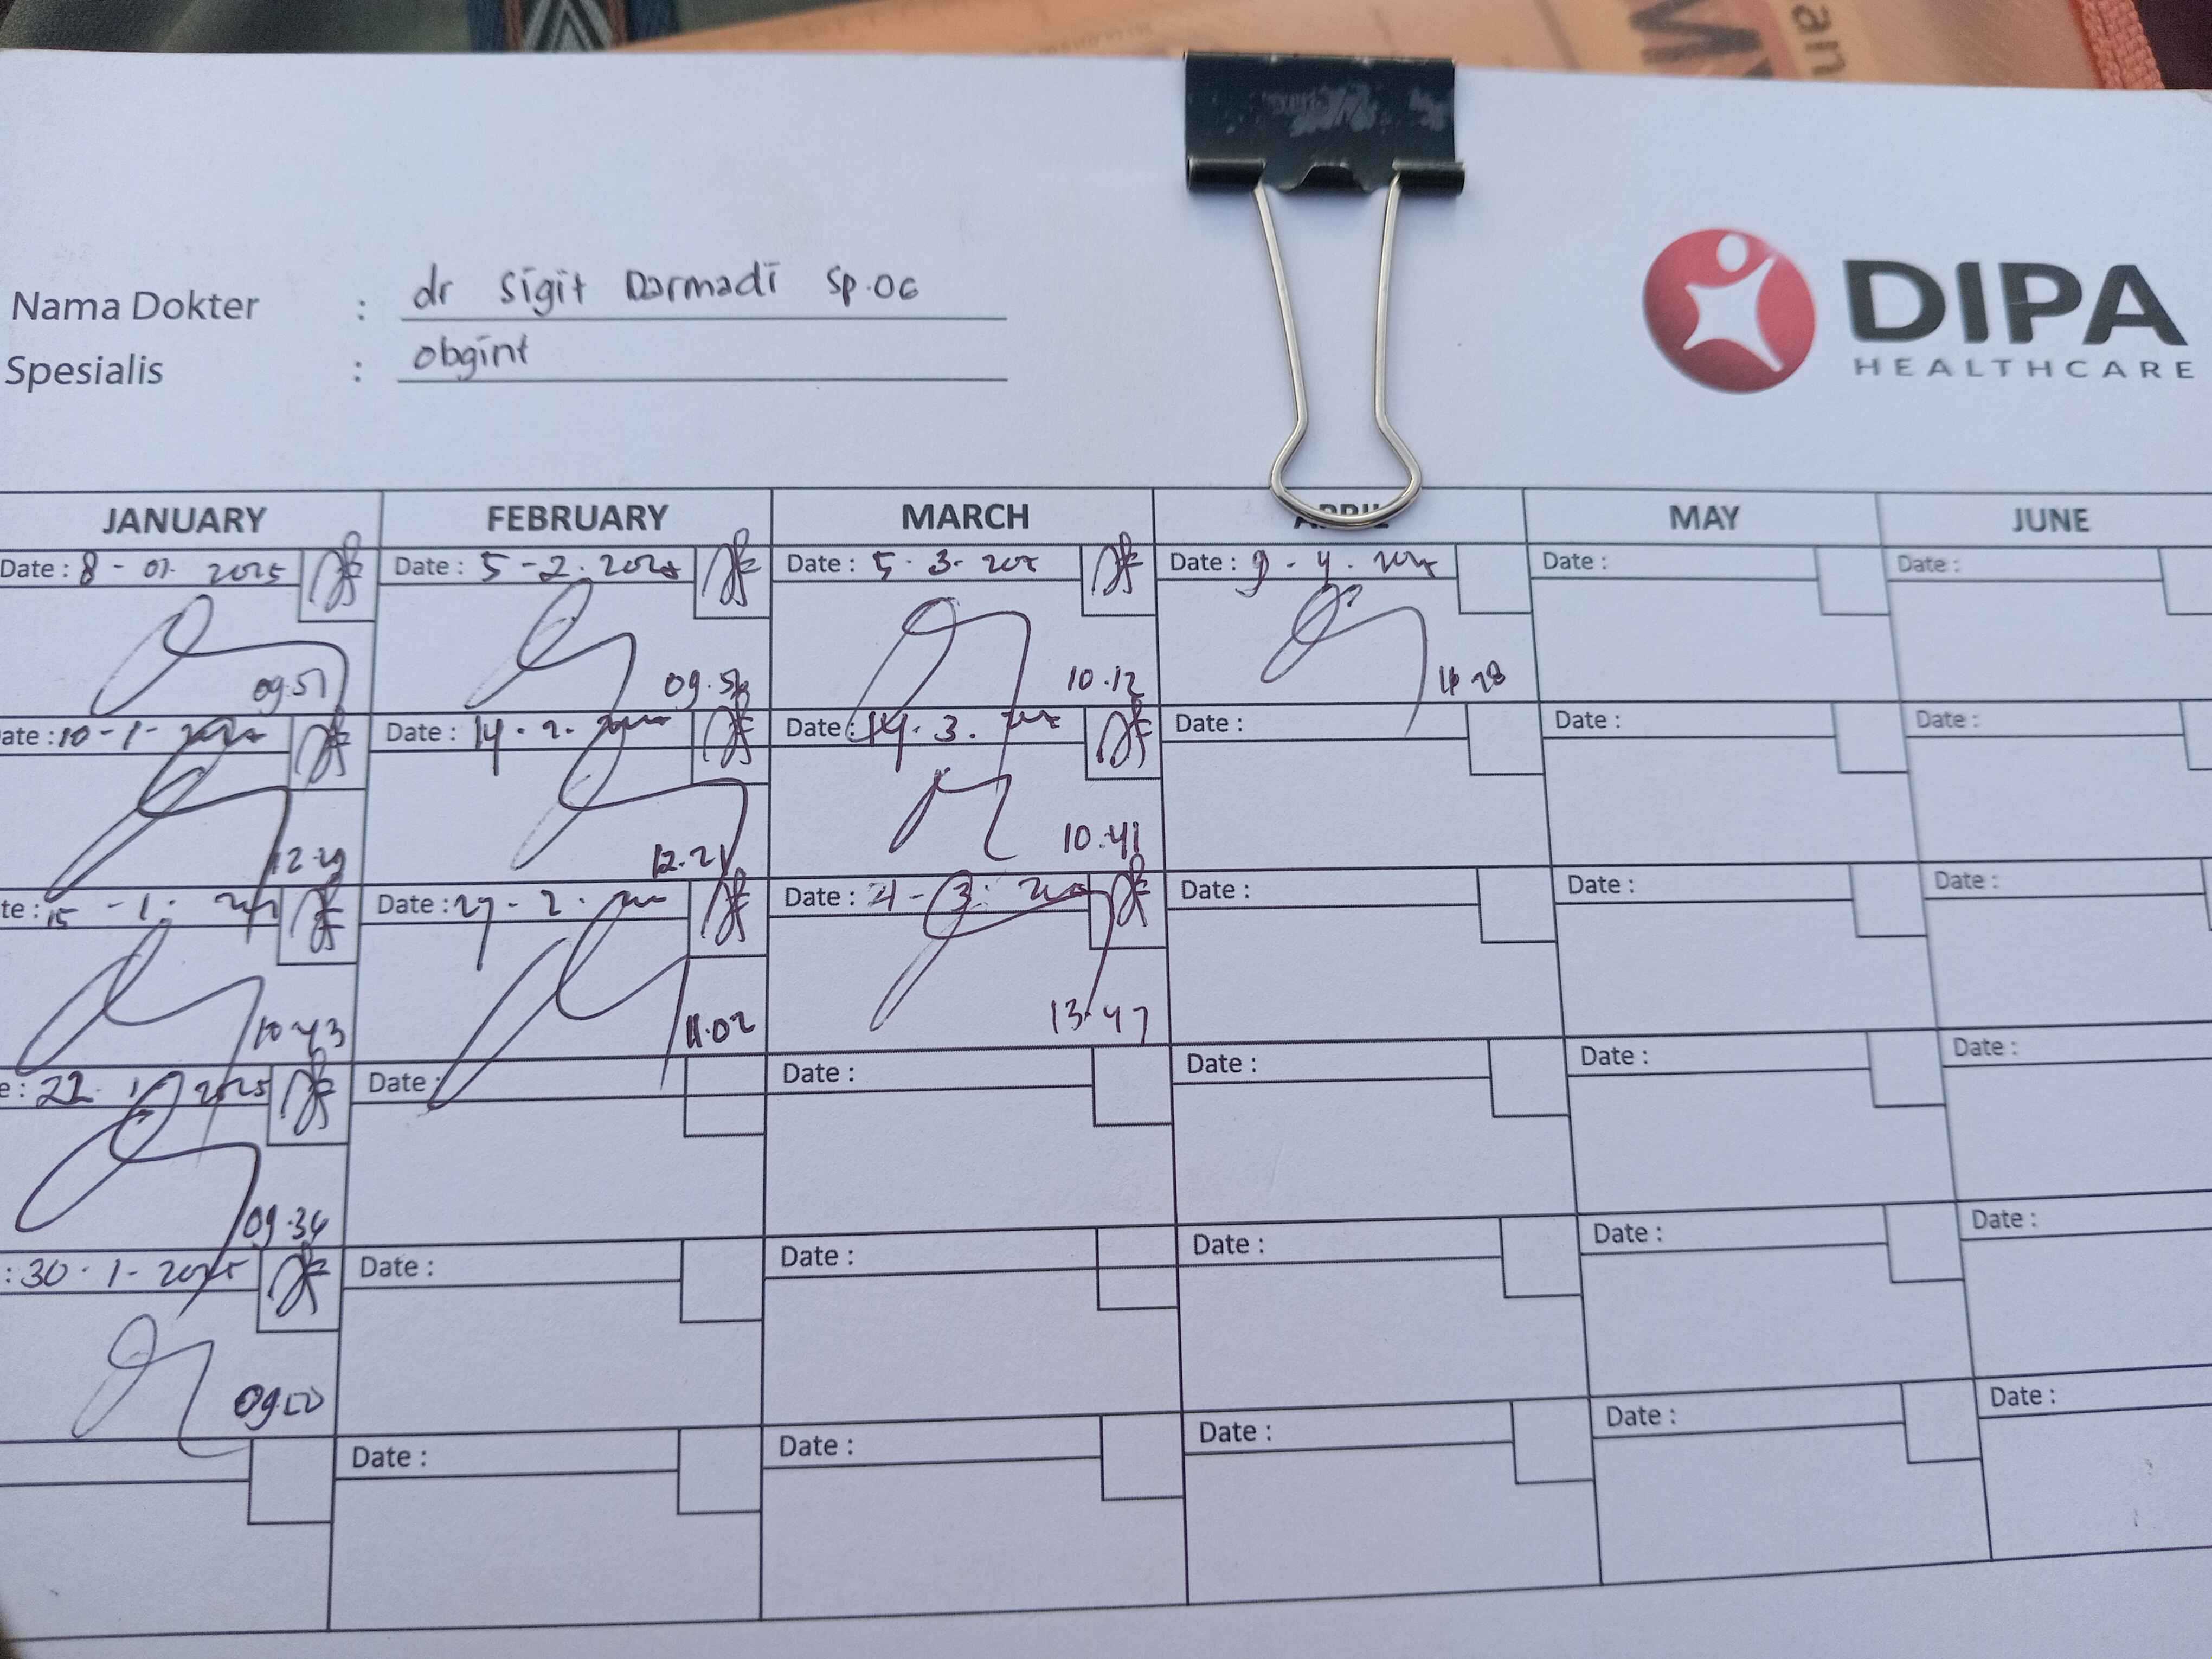 an
Nama Dokter : dr Sigit Darmadi Sp.OG
Spesialis : obgint
DIPA
HEALTHCARE
JANUARY FEBRUARY MARCH APRIL MAY JUNE
Date : 8 - 01 2025 Date : 5 - 2 . 2025 Date : 5 . 3 - 202 Date : 9 - 4 . Date : Date :
09.51 09.5 10.12 28
ate : 10 - 1 - Date : 14 . 2 . Date : 14 . 3 . Date : Date : Date :
12.29 12.21 10.41
te : 15 - 1 . Date : 27 - 2 . Date : 21 - 3 . Date : Date : Date :
10.43 11.02 13.47
e : 22 . 1 2025 Date : Date : Date : Date : Date :
09.34
: 30 . 1 - 2025 Date : Date : Date : Date : Date :
09.
Date : Date : Date : Date : Date :